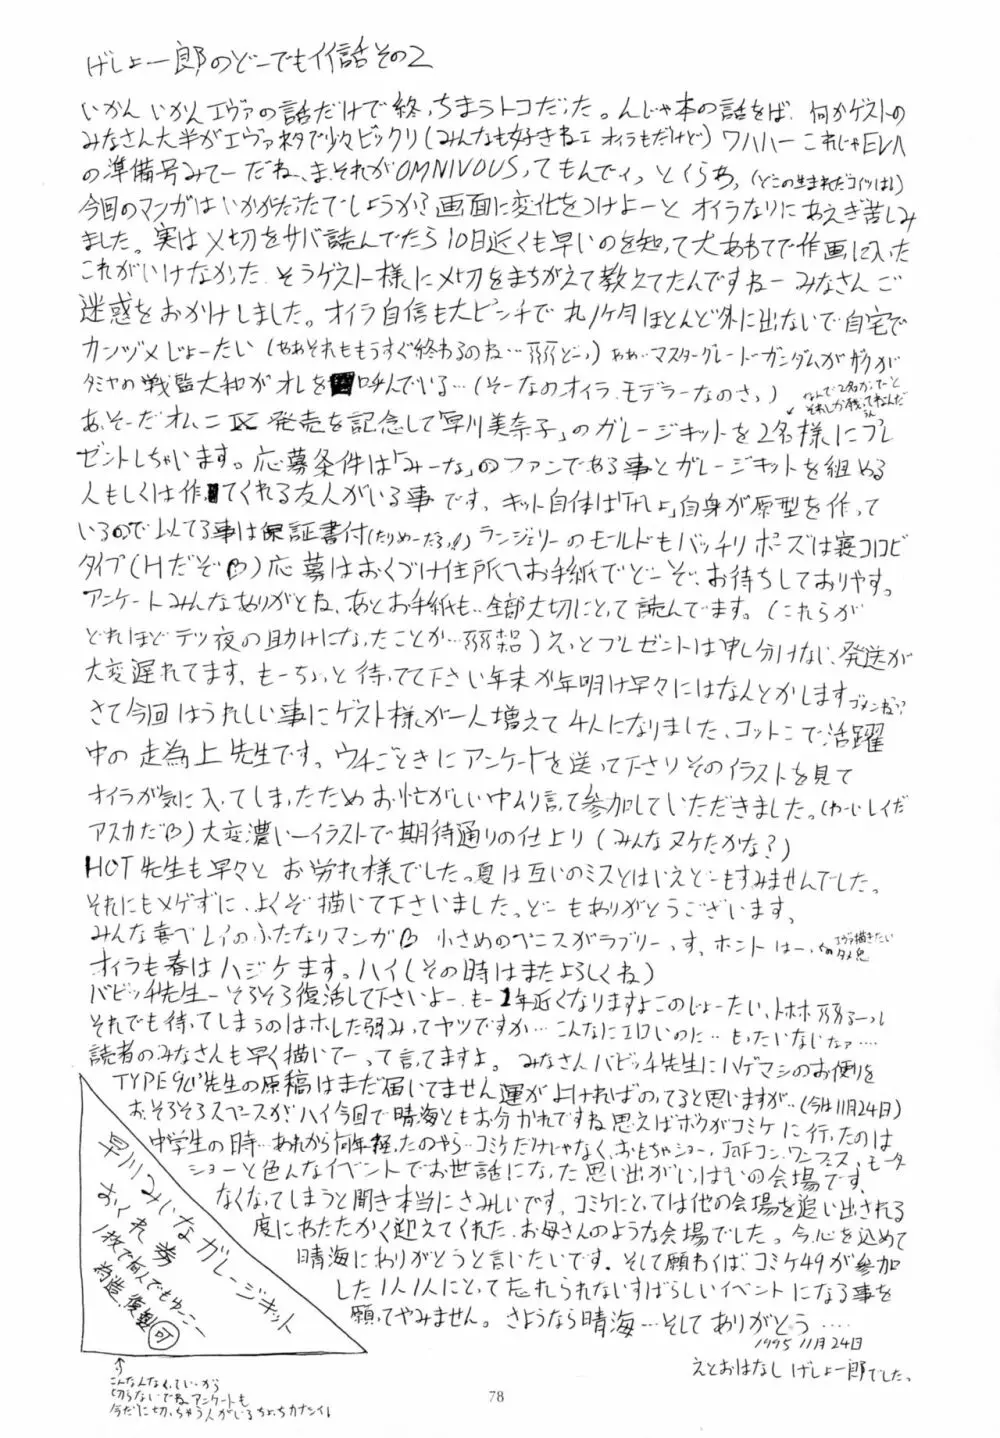 げしょ一郎のどーでもイイ話その2
いかんいかんエヴァの話だけで終っちまうトコだった。んじゃ本の話をば、何かゲストの
みなさん大半がエヴァネタで少々ビックリ(みんなも好きねェオイラもだけど)ワハハー これじゃEVA
の準備号みてーだね、まそれがOMNIVOUSってもんでィっとくらぁ、(どこの生まれだコイツは!)
今回のマンガはいかがだったでしょうか?画面に変化をつけよーと オイラなりにあえぎ苦しみ
ました。実は〆切をサバ読んでたら10日近くも早いのを知って大あわてで作画に入った
これがいけなかった、そうゲスト様に〆切をまちがえて教えてたんですねー みなさんご
迷惑をおかけしました。オイラ自信も大ピンチで丸1ヶ月ほとんど外に出ないで自宅で
カンヅメじょーたい(ああそれももうすぐ終わるのね…
マスターグレードガンダムがガクが
タミヤの戦艦大和がオレを呼んでいる…(そーなのオイラ、モデラーなのさっ)
なんで2名かってーと
それしか残ってねんだ
あ、そーだオレ、
発売を記念して「早川美奈子」のガレージキットを2名様にプレ
ゼントしちゃいます。応募条件は「みーな」のファンである事とガレージキットを組める
人もしくは作ってくれる友人がいる事です、キット自体は「げしょ」自身が原型を作って
いるので似てる事は保証書付(たりめーだろっ!)ランジェリーのモールドもバッチリポーズは寝コロビ
タイプ(Hだぞ♡)応募はおくづけ住所へお手紙でどーぞ、お待ちしておりやす。
アンケートみんなありがとね、あとお手紙も…全部大切にとって読んでます。(これらが
どれほどテツ夜の助けになったことか…
)えっとプレゼントは申し分けない、発送が
大変遅れてます、もーちょっと待ってて下さい年末か年明け早々にはなんとかします
さて今回はうれしい事にゲスト様が一人増えて4人になりました、コットンコミで活躍
中の走為上先生です。ウチごときにアンケートを送って下さりそのイラストを見て
オイラが気に入ってしまったためお忙がしい中ムリ言って参加していただきました。(わーいレイだ
アスカだ♡)大変濃いーイラストで期待通りの仕上り(みんなヌケたかな?)
HOT先生も早々とお労れ様でした。夏は互いのミスとはいえどーもすみませんでした。
それにもメゲずに、よくぞ描いて下さいました。どーもありがとうございます、
みんな喜べレイのふたなりマンガ♡ 小さめのペニスがラブリーっす。ホント
オイラも春はハジケます。ハイ(その時はまたよろしくね)
バビッチ先生ーそろそろ復活して下さいよー、もー1年近くなりますよこのじょーたい、トホホ
それでも待ってしまうのはホレた弱みってヤツですか…こんなにエロいのに…もったいないなァ…
読者のみなさんも早く描いてーって言ってますよ。みなさんバビッチ先生にハゲマシのお便りを
TYPE90先生の原稿はまだ届いてません運がよければのってると思いますが…(今は11月24日)
おっそろそろスペースが、ハイ今回で晴海ともお分かれですね思えばボクがコミケに行ったのは
中学生の時…あれから何年経ったのやら…コミケだけじゃなく、おもちゃショー、JAFコン、ワンフェス、モータ
ショーと色んなイベントでお世話になった思い出がいっぱいの会場です、
なくなってしまうと聞き本当にさみしいです。コミケにとっては他の会場を追い出される
度にあたたかく迎えてくれた、お母さんのような会場でした。今、心を込めて
晴海にありがとうと言いたいです。そして願わくば、コミケ49が参加
した1人1人にとって忘れられないすばらしいイベントになる事を
願ってやみません。さようなら晴海…そしてありがとう….
1995 11月24日
えとおはなし げしょ一郎でした。
早川みいなガレージキット
おくれ券
1枚で何人でもゆーこー
偽造、復製可
こんなんなくていーから
切らないでね、アンケートも
今だに切っちゃう人がいるちょっちカナシイ!
78